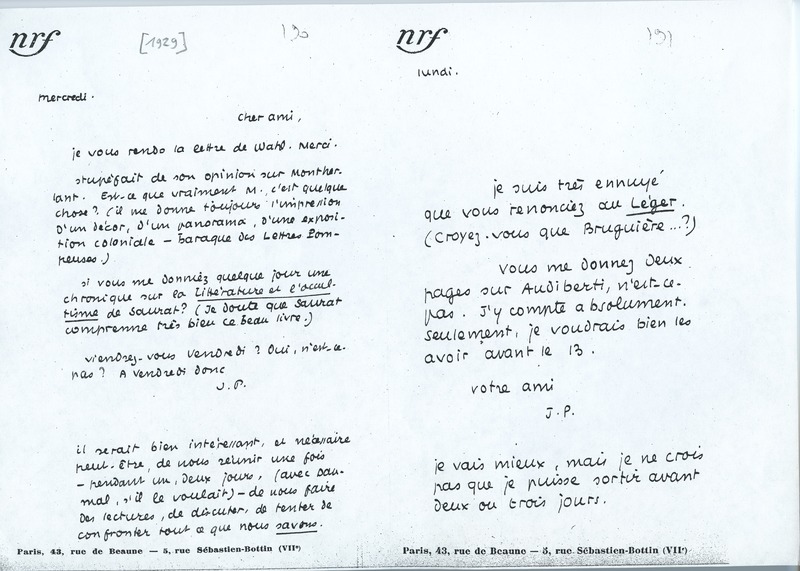 nrf
[1929]
130
mercredi.
cher ami,
je vous rends la lettre de Wahl. Merci.
stupéfait de son opinion sur Monther-
lant. Est-ce que vraiment M., c'est quelque
chose? (il me donne toujours l'impression
d'un décor, d'un panorama, d'une exposi-
tion coloniale – baraque des Lettres Pom-
peuses.)
si vous me donniez quelque jour une
chronique sur la Littérature et l'occul-
tisme de Saurat? (Je doute que Saurat
comprenne très bien ce beau livre.)
viendrez-vous vendredi? Oui, n'est-ce-
pas? A vendredi donc
J.P.
il serait bien intéressant, et nécessaire
peut-être, de nous réunir une fois
– pendant un, deux jours, (avec Dau-
mal, s'il le voulait) – de nous faire
des lectures, de discuter, de tenter de
confronter tout ce que nous savons.
Paris, 43, rue de Beaune — 5, rue Sébastien-Bottin (VIIe)
nrf
131
lundi.
je suis très ennuyé
que vous renonciez au Léger.
(Croyez-vous que Bruguière...?)
vous me donnez deux
pages sur Audiberti, n'est-ce-
pas. J'y compte absolument.
seulement, je voudrais bien les
avoir avant le 13.
votre ami
J.P.
je vais mieux, mais je ne crois
pas que je puisse sortir avant
deux ou trois jours.
Paris, 43, rue de Beaune — 5, rue Sébastien-Bottin (VIIe)